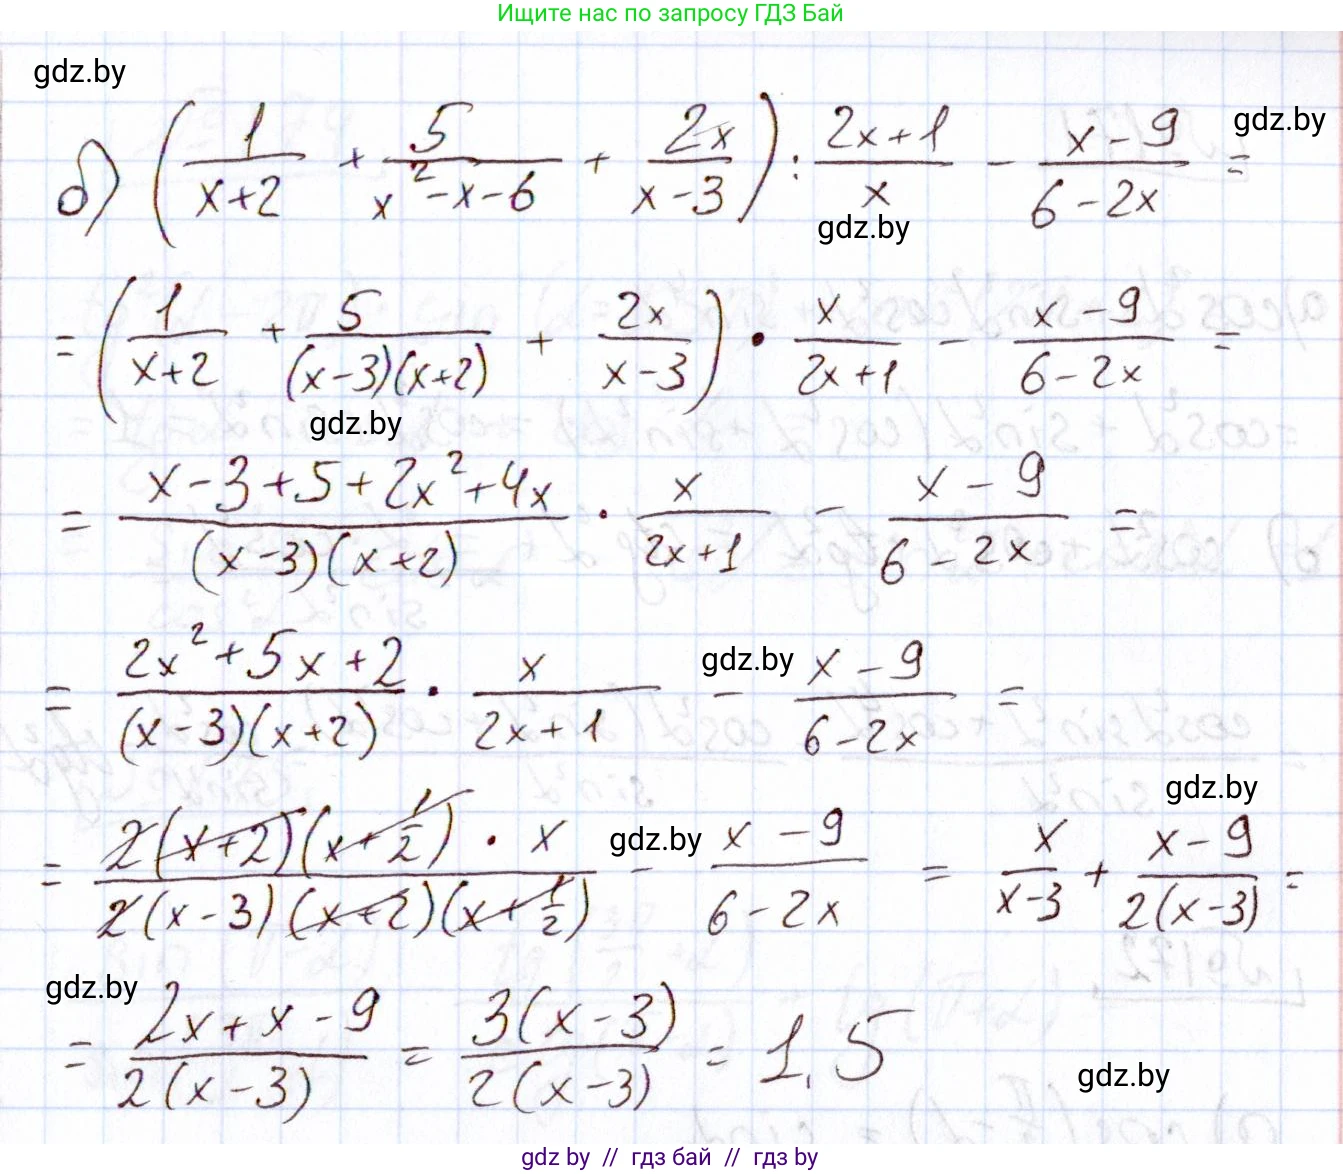 Ищите нас по запросу ГДЗ Бай
gdz.by
б) (1/(x+2) + 5/(x²-x-6) + 2x/(x-3)) : (2x+1)/x - (x-9)/(6-2x) =
gdz.by
gdz.by
= (1/(x+2) + 5/((x-3)(x+2)) + 2x/(x-3)) · x/(2x+1) - (x-9)/(6-2x) =
gdz.by
= (x-3+5+2x²+4x)/((x-3)(x+2)) · x/(2x+1) - (x-9)/(6-2x) =
= (2x²+5x+2)/((x-3)(x+2)) · x/(2x+1) - (x-9)/(6-2x) =
gdz.by
gdz.by
= 2(x+2)(x+1/2) · x/(2(x-3)(x+2)(x+1/2)) - (x-9)/(6-2x) = x/(x-3) + (x-9)/(2(x-3)) =
gdz.by
gdz.by
= (2x+x-9)/(2(x-3)) = 3(x-3)/(2(x-3)) = 1,5
gdz.by
gdz by // гдз бай // гдз by